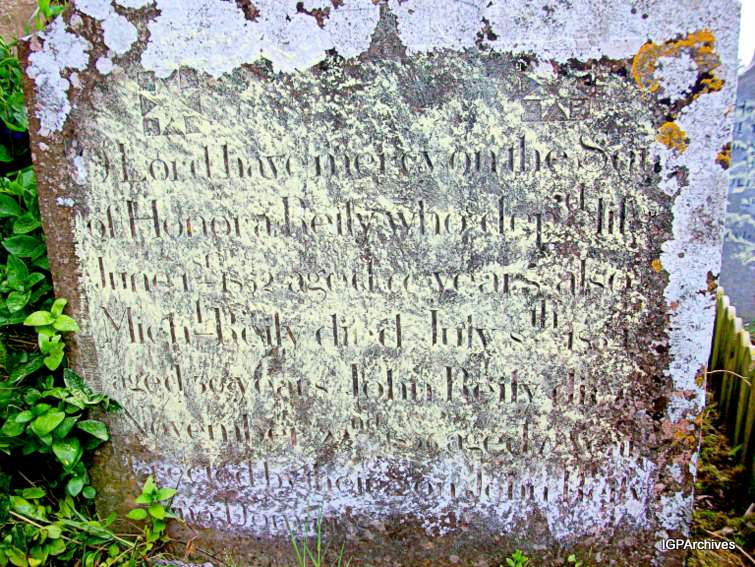 O Lord have mercy on the Soul
of Honora Reily who dep.d life
June 1st 1852 aged years also
Mich.l Reily died July 8th
aged years John Reily died
November 22nd aged years
Erected by their Son John Reily
IGPArchives